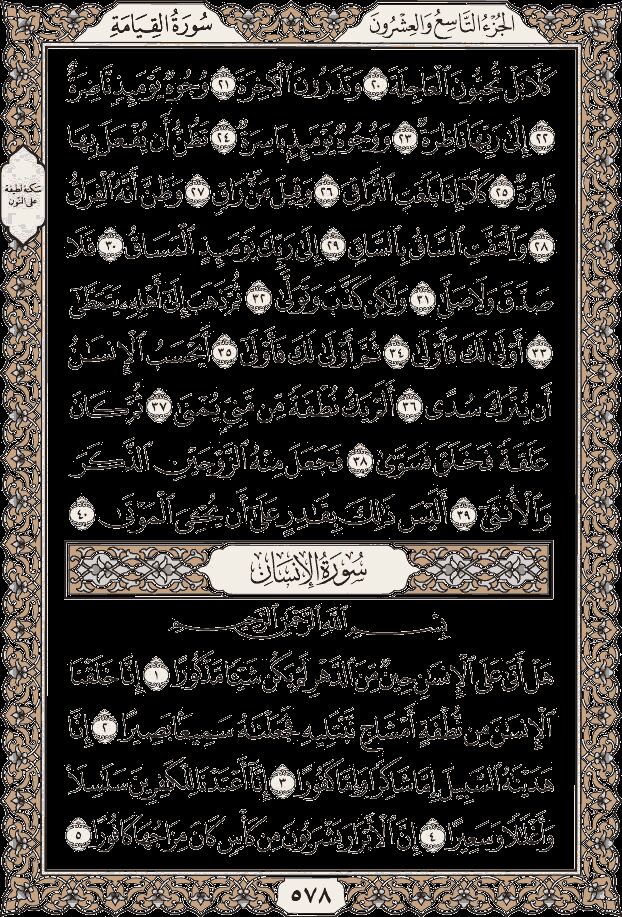 سُورَةُ القِيَامَةِ
الجُزْءُ التَّاسِعُ وَالعِشْرُونَ
كَلَّا بَلْ تُحِبُّونَ ٱلْعَاجِلَةَ ٢٠ وَتَذَرُونَ ٱلْأَخِرَةَ ٢١ وُجُوهٌ يَوْمَئِذٍ نَّاضِرَةٌ
٢٢ إِلَىٰ رَبِّهَا نَاظِرَةٌ ٢٣ وَوُجُوهٌ يَوْمَئِذِۭ بَاسِرَةٌ ٢٤ تَظُنُّ أَن يُفْعَلَ بِهَا
فَاقِرَةٌ ٢٥ كَلَّآ إِذَا بَلَغَتِ ٱلتَّرَاقِىَ ٢٦ وَقِيلَ مَنْ رَاقٍ ٢٧ وَظَنَّ أَنَّهُ ٱلْفِرَاقُ
٢٨ وَٱلْتَفَّتِ ٱلسَّاقُ بِٱلسَّاقِ ٢٩ إِلَىٰ رَبِّكَ يَوْمَئِذٍ ٱلْمَسَاقُ ٣٠ فَلَا
صَدَّقَ وَلَا صَلَّىٰ ٣١ وَلَٰكِن كَذَّبَ وَتَوَلَّىٰ ٣٢ ثُمَّ ذَهَبَ إِلَىٰٓ أَهْلِهِۦ يَتَمَطَّىٰٓ
٣٣ أَوْلَىٰ لَكَ فَأَوْلَىٰ ٣٤ ثُمَّ أَوْلَىٰ لَكَ فَأَوْلَىٰٓ ٣٥ أَيَحْسَبُ ٱلْإِنسَٰنُ
أَن يُتْرَكَ سُدًى ٣٦ أَلَمْ يَكُ نُطْفَةً مِّن مَّنِىٍّ يُمْنَىٰ ٣٧ ثُمَّ كَانَ
عَلَقَةً فَخَلَقَ فَسَوَّىٰ ٣٨ فَجَعَلَ مِنْهُ ٱلزَّوْجَيْنِ ٱلذَّكَرَ
وَٱلْأُنثَىٰٓ ٣٩ أَلَيْسَ ذَٰلِكَ بِقَٰدِرٍ عَلَىٰٓ أَن يُحْـِۧىَ ٱلْمَوْتَىٰ ٤٠
سُورَةُ الإِنسَان
بِسْمِ ٱللَّهِ ٱلرَّحْمَٰنِ ٱلرَّحِيمِ
هَلْ أَتَىٰ عَلَى ٱلْإِنسَٰنِ حِينٌ مِّنَ ٱلدَّهْرِ لَمْ يَكُن شَيْـًٔا مَّذْكُورًا ١ إِنَّا خَلَقْنَا
ٱلْإِنسَٰنَ مِن نُّطْفَةٍ أَمْشَاجٍ نَّبْتَلِيهِ فَجَعَلْنَٰهُ سَمِيعًۢا بَصِيرًا ٢ إِنَّا
هَدَيْنَٰهُ ٱلسَّبِيلَ إِمَّا شَاكِرًا وَإِمَّا كَفُورًا ٣ إِنَّآ أَعْتَدْنَا لِلْكَٰفِرِينَ سَلَٰسِلَا۟
وَأَغْلَٰلًا وَسَعِيرًا ٤ إِنَّ ٱلْأَبْرَارَ يَشْرَبُونَ مِن كَأْسٍ كَانَ مِزَاجُهَا كَافُورًا ٥
سكتة لطيفة
على النون
٥٧٨